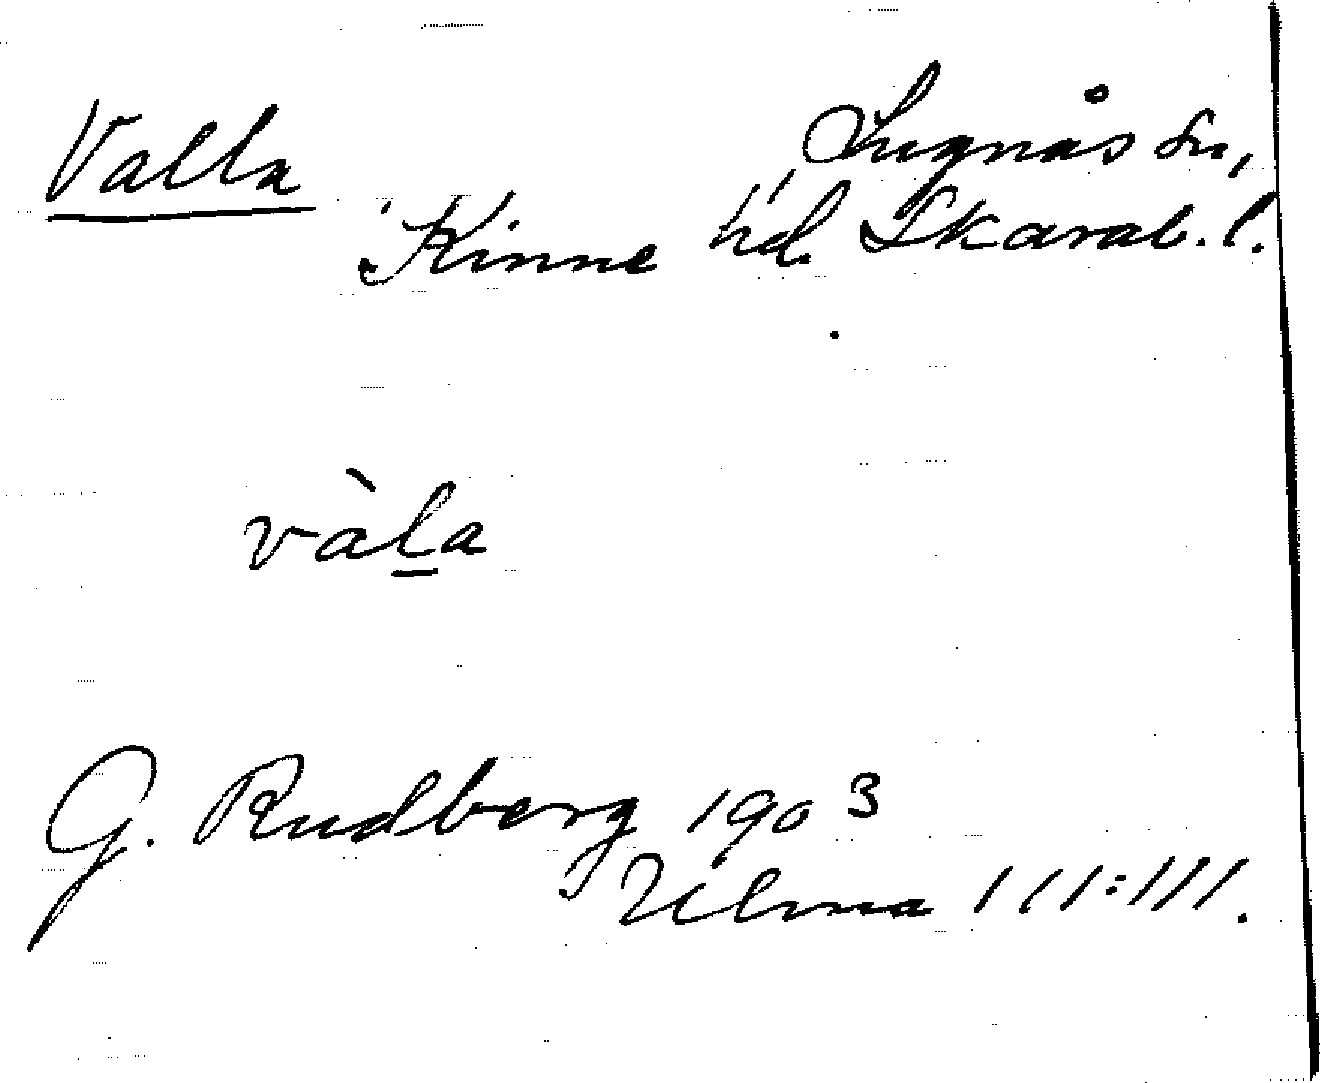 Valla
Lugnås sn,
Kinne hd. Skarab. l.
vàl̲a
G. Rudberg 1903
Ulma 111:111.